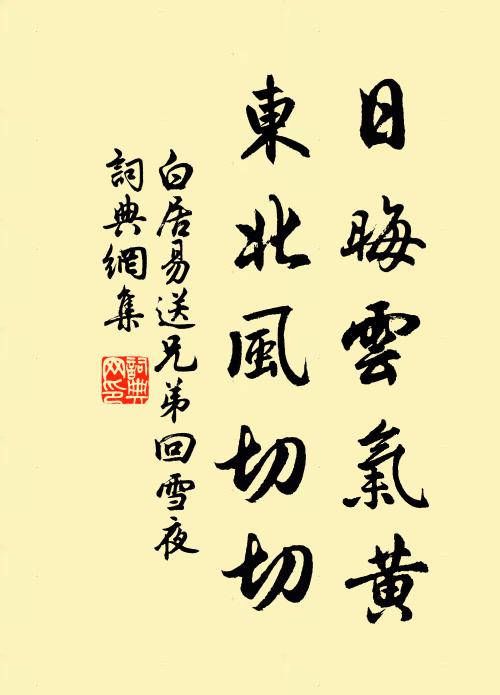 日晦雲氣黃
東北風切切
白居易送兄弟回雪夜
詞典網集
詞典網印